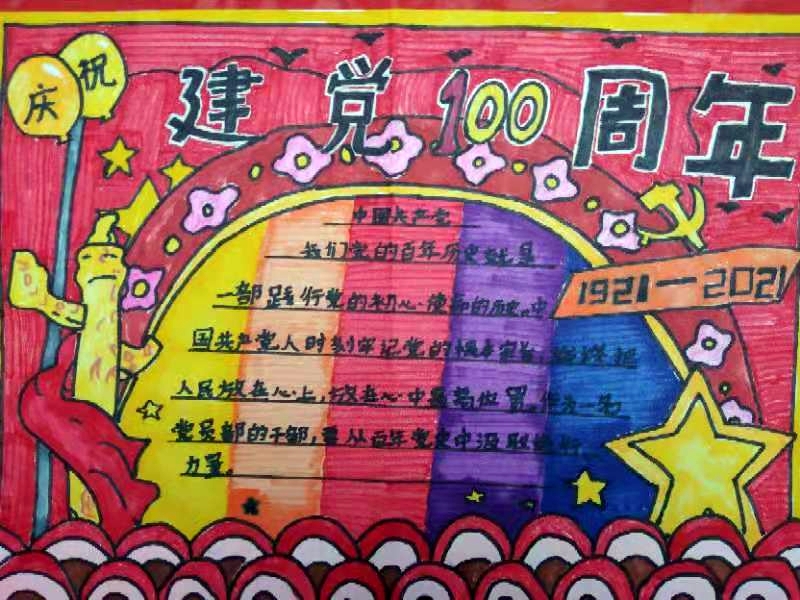 庆祝
建党100周年
1921—2021
中国共产党
我们党的百年历史就是
一部践行党的初心使命的历史。中
国共产党人时刻牢记党的根本宗旨,
人民放在心上,放在心中最高位置。作为一名
党员部的干部,要从百年党史中汲取
力量。